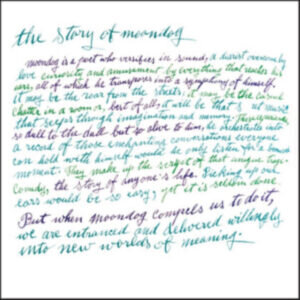 the story of moondog
moondog is a poet who versifies in sound, a diarist overcome by
love curiosity and amusement by everything that reaches his
ears, all of which he transposes into a symphony of himself.
it may be the roar from the streets, it may be the casual
chatter in a room, best of all, it will be that music
that seeps through imagination and memory.
so dull to the dull but so alive to him, he orchestrates into
a record of those enchanting conversations everyone
can hold with himself would he only listen for a
moment. They make up the script of that unique tragi-
comedy, the story of anyone's life. Picking up our
ears would be so easy; yet it is seldom done.
But when moondog compels us to do it,
we are entranced and delivered willingly
into new worlds of meaning.